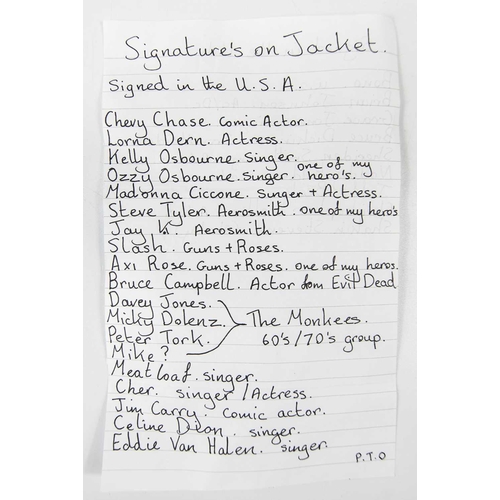 Signature's on Jacket.
Signed in the U.S.A.
Chevy Chase. Comic Actor.
Lorna Dern. Actress.
Kelly Osbourne. Singer.
Ozzy Osbourne. Singer. one of my hero's.
Madonna Ciccone. Singer + Actress.
Steve Tyler. Aerosmith. one of my hero's
Jay K. Aerosmith.
Slash. Guns + Roses.
Axi Rose. Guns + Roses. one of my heros.
Bruce Campbell. Actor from Evil Dead
Davey Jones.
Micky Dolenz.
Peter Tork.
Mike?
The Monkees.
60's/70's group.
Meatloaf. singer.
Cher. singer/Actress.
Jim Carry. Comic actor.
Celine Dion. singer.
Eddie Van Halen. singer.
P.T.O